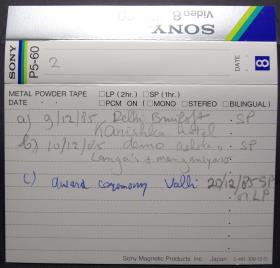 SONY
Video 8
SONY
P5-60
2
DATE
8
METAL POWDER TAPE □LP (2hr.) □SP (1hr.)
DATE · · □PCM ON (□MONO □STEREO □BILINGUAL)
a) 9/12/85 Delhi SP
Kanishka Hotel
b) 10/12/85 demo SP
Langa's + manganiyars
c) award ceremony Valli 20/12/85 SP
or LP
Sony Magnetic Products, Inc. Japan